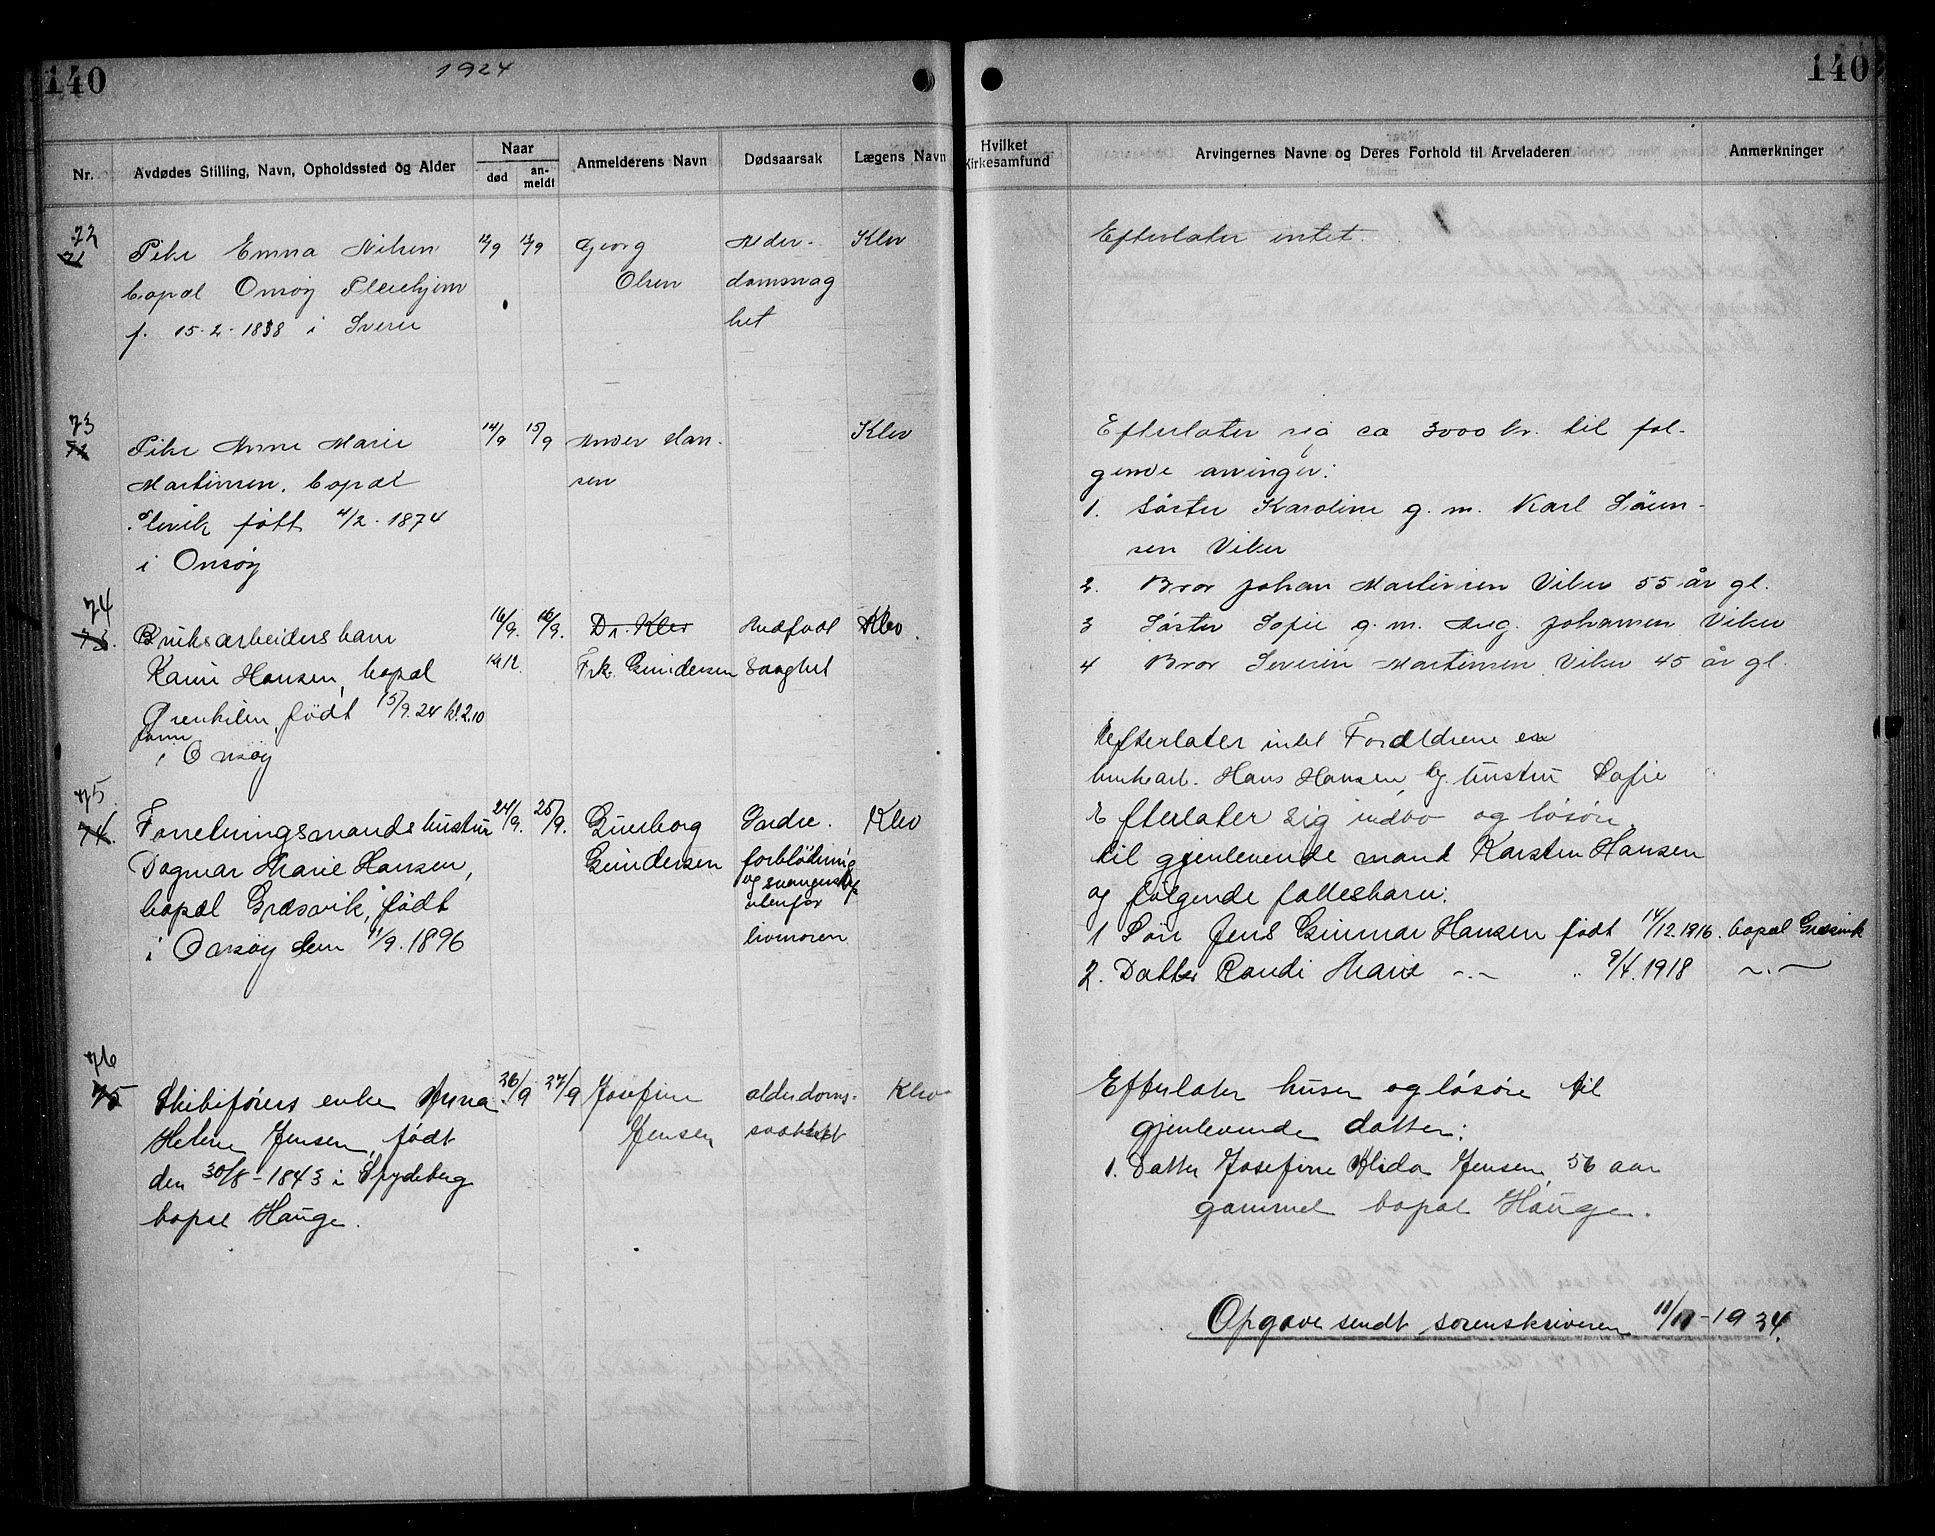 140
1924
140
Nr.
Avdødes Stilling, Navn, Opholdssted og Alder
Naar
død
an-
meldt
Anmelderens Navn
Dødsaarsak
Lægens Navn
Hvilket
Kirkesamfund
Arvingernes Navne og Deres Forhold til Arveladeren
Anmerkninger
72
71
Pike Emma Nilsen
bopæl Onsøy Pleiehjem
f. 15-2-1838 i Sverie
12/9 13/9
Georg
Olsen
Alder-
domssvag
het
Klev
Efterlater intet.
73
72
Pike Anne Marie
Martinsen, bopæl
Slevik født 4/2-1874
i Onsøy
14/9 15/9
Han-
sen
Klev
Efterlater sig ca 3000 kr. til føl-
gende arvinger:
1. Søster Karoline g. m. Karl Søren-
sen Viker
2. Bror Johan Martinsen Viker 55 år gl.
3 Søster Sofie g. m. Aug. Johansen Viker
4 Bror Severin Martinsen Viker 45 år gl.
74
73.
Bruksarbeidersbarn
Karin Hansen, bopæl
født 15/9.24 kl. 2.10
form
i Onsøy
16/9. 16/9.
Dr. Klev
Frk. Gundersen
Medfødt
svaghet
Klev.
Efterlater intet Foreldrene er
brukarb. Hans Hansen, og hustru Sofie
75
74.
Forretningsmandshustru
Dagmar Marie Hansen,
bopæl Græsvik, født
i Onsøy den 11/9.1896
24/9. 25/9.
Gunborg
Gundersen
Indre.
forblødning
og svangerskap
utenfor
livmoren
Klev
Efterlater sig indbo og løsøre
til gjenlevende mand Karsten Hansen
og følgende fællesbarn:
1 Søn Jens Gunnar Hansen født 14/12.1916. bopæl Græsvik
2. Datter Randi Marie -.- " 9/4.1918 -.-
76
75
Skibsførers enke Anna
Helene Jensen, født
den 30/8-1843 i Spydeberg
bopæl Hauge.
26/9 27/9
Josefine
Jensen
alderdoms-
svakhet
Klev
Efterlater huser og løsøre til
gjenlevende datter:
1. Datter Josefine Alida Jensen, 56 aar
gammel bopæl Hauge.
Opgave sendt sorenskriveren 11/11-1934.